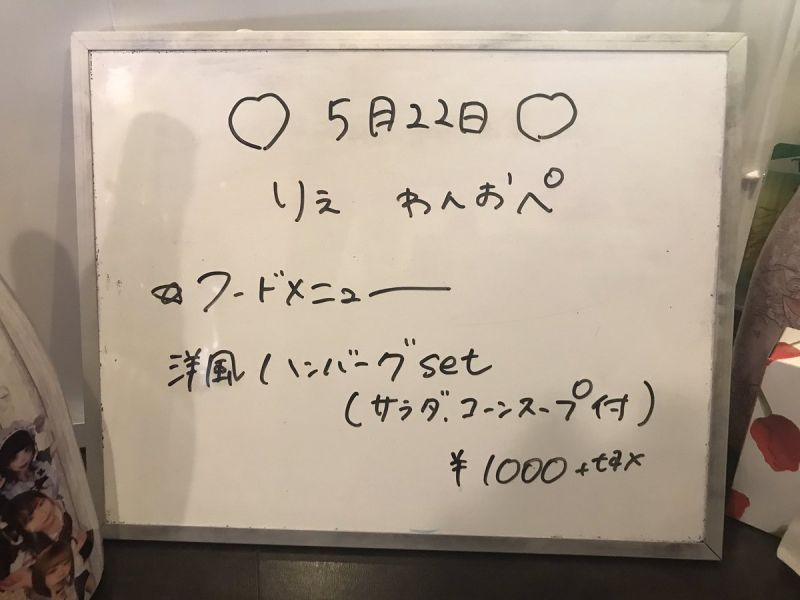 ♡ 5月22日 ♡
りえ わんおぺ
☆フードメニュー
洋風ハンバーグset
(サラダ、コーンスープ付)
¥1000+tax